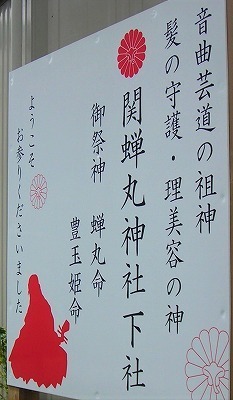 音曲芸道の祖神
髪の守護・理美容の神
関蝉丸神社下社
御祭神 蝉丸命
豊玉姫命
ようこそ
お参りくださいました